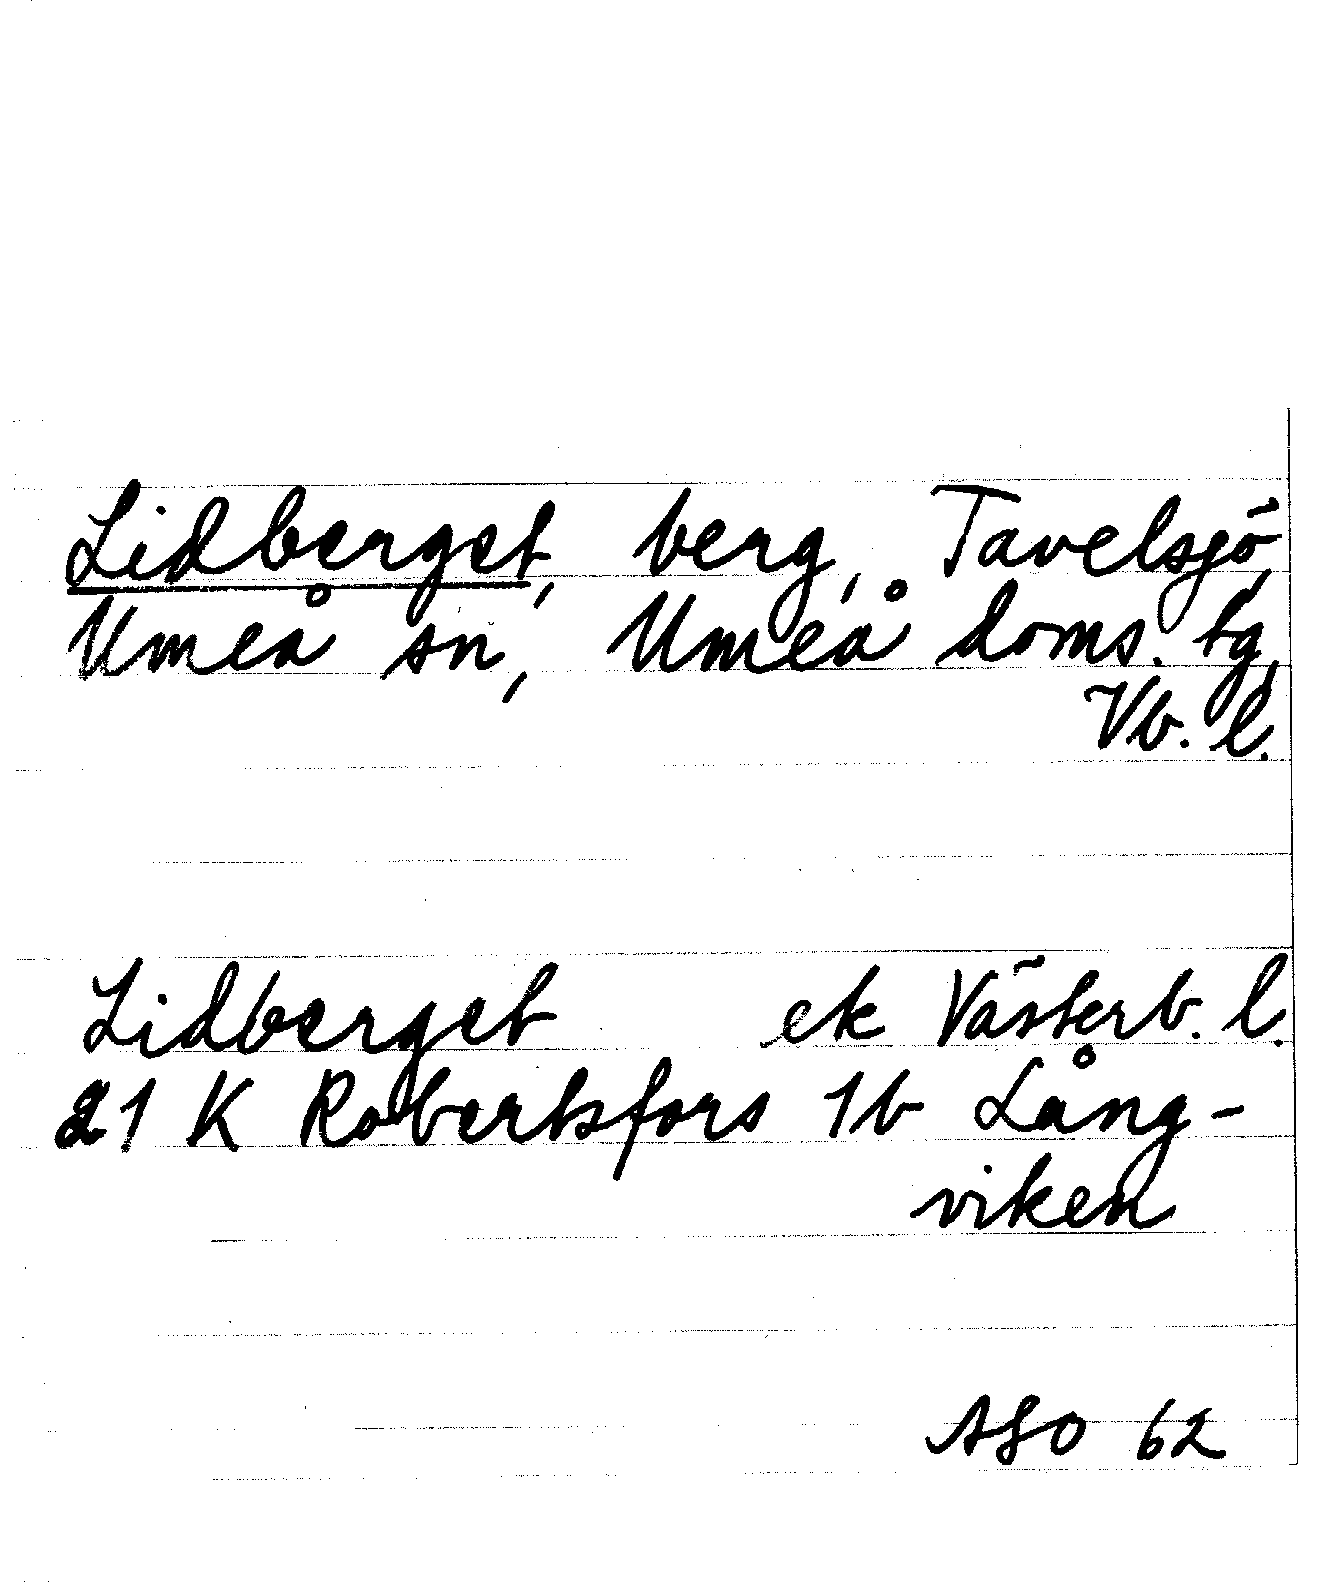 Lidberget, berg, Tavelsjö,
Umeå sn, Umeå doms. tg,
Vb. l.
Lidberget ek Västerb. l.
21 K Robertsfors 1b Lång-
viken
ASO 62